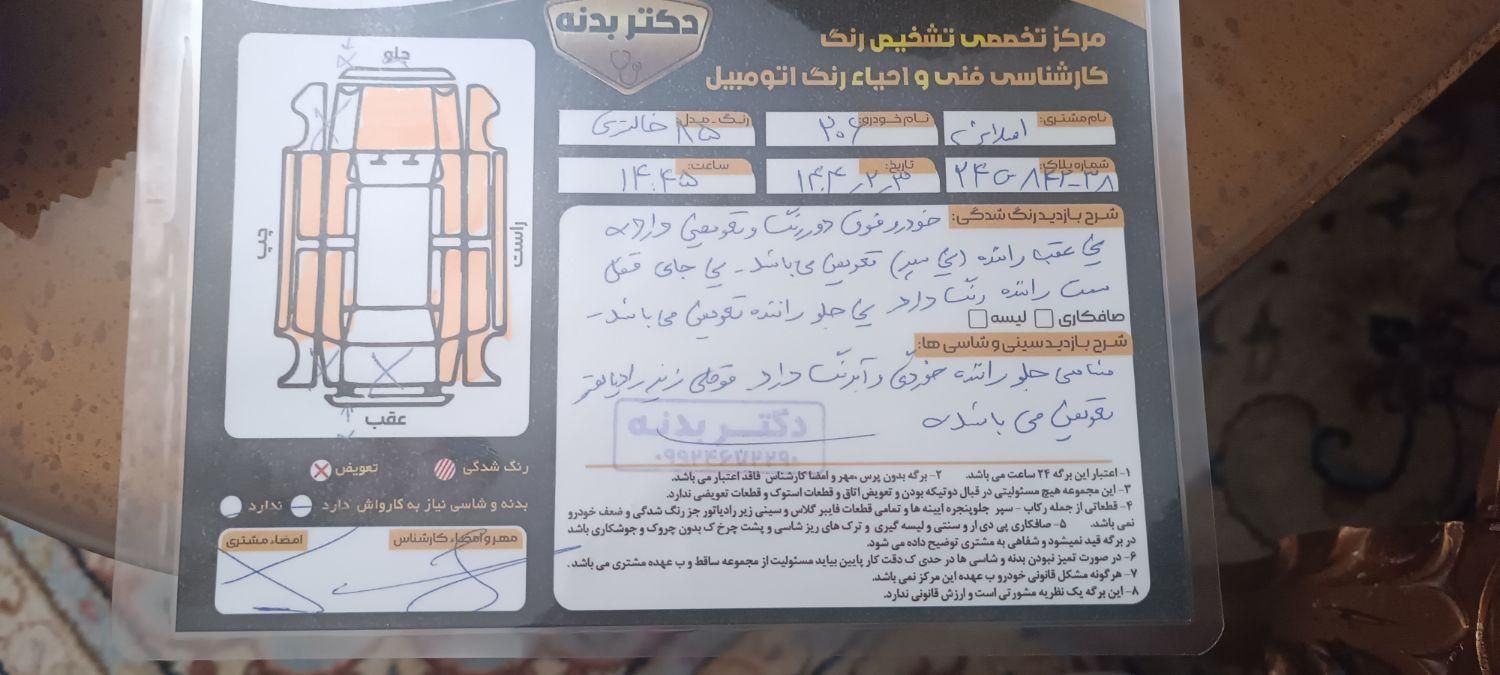 دکتر بدنه
مرکز تخصصی تشخیص رنگ
کارشناسی فنی و احیاء رنگ اتومبیل
نام مشتری:
نام خودرو: ۲۰۶
رنگ - مدل: ۸۵ خاکستری
شماره پلاک: ۲۴ ۸۴۲-۳۸
تاریخ: ۱۴۰۴٫۲٫۳
ساعت: ۱۴:۴۵
شرح بازدید رنگ شدگی: خودرو فوق دور رنگ و تعویضی دارد
عقب راننده تعویض می باشد - جای قفل
سمت راننده رنگ دارد جلو راننده تعویض می باشد -
صافکاری لیسه
شرح بازدید سینی و شاسی ها:
شاسی جلو راننده خوردگی و آبرنگ دارد قوطی زیر رادیاتور
تعویض می باشد
دکتر بدنه
۰۹۹۲۴۶۷۲۲۹۰
۱- اعتبار این برگه ۲۴ ساعت می باشد. ۲- برگه بدون پرس ،مهر و امضا کارشناس فاقد اعتبار می باشد.
۳- این مجموعه هیچ مسئولیتی در قبال دوتیکه بودن و تعویض اتاق و قطعات استوک و قطعات تعویضی ندارد.
۴- قطعاتی از جمله رکاب - سپر جلوپنجره آیینه ها و تمامی قطعات فایبر گلاس و سینی زیر رادیاتور جز رنگ شدگی و ضعف خودرو
نمی باشد. ۵- صافکاری پی دی ار و سنتی و لیسه گیری و ترک های ریز شاسی و پشت چرخ ک بدون چروک و جوشکاری باشد
در برگه قید نمیشود و شفاهی به مشتری توضیح داده می شود.
۶- در صورت تمیز نبودن بدنه و شاسی ها در حدی ک دقت کار پایین بیاید مسئولیت از مجموعه ساقط و ب عهده مشتری می باشد.
۷- هرگونه مشکل قانونی خودرو ب عهده این مرکز نمی باشد.
۸- این برگه یک نظریه مشورتی است و ارزش قانونی ندارد.
جلو
راست
چپ
عقب
رنگ شدگی تعویض
بدنه و شاسی نیاز به کارواش دارد ندارد
مهر و امضاء کارشناس
امضاء مشتری